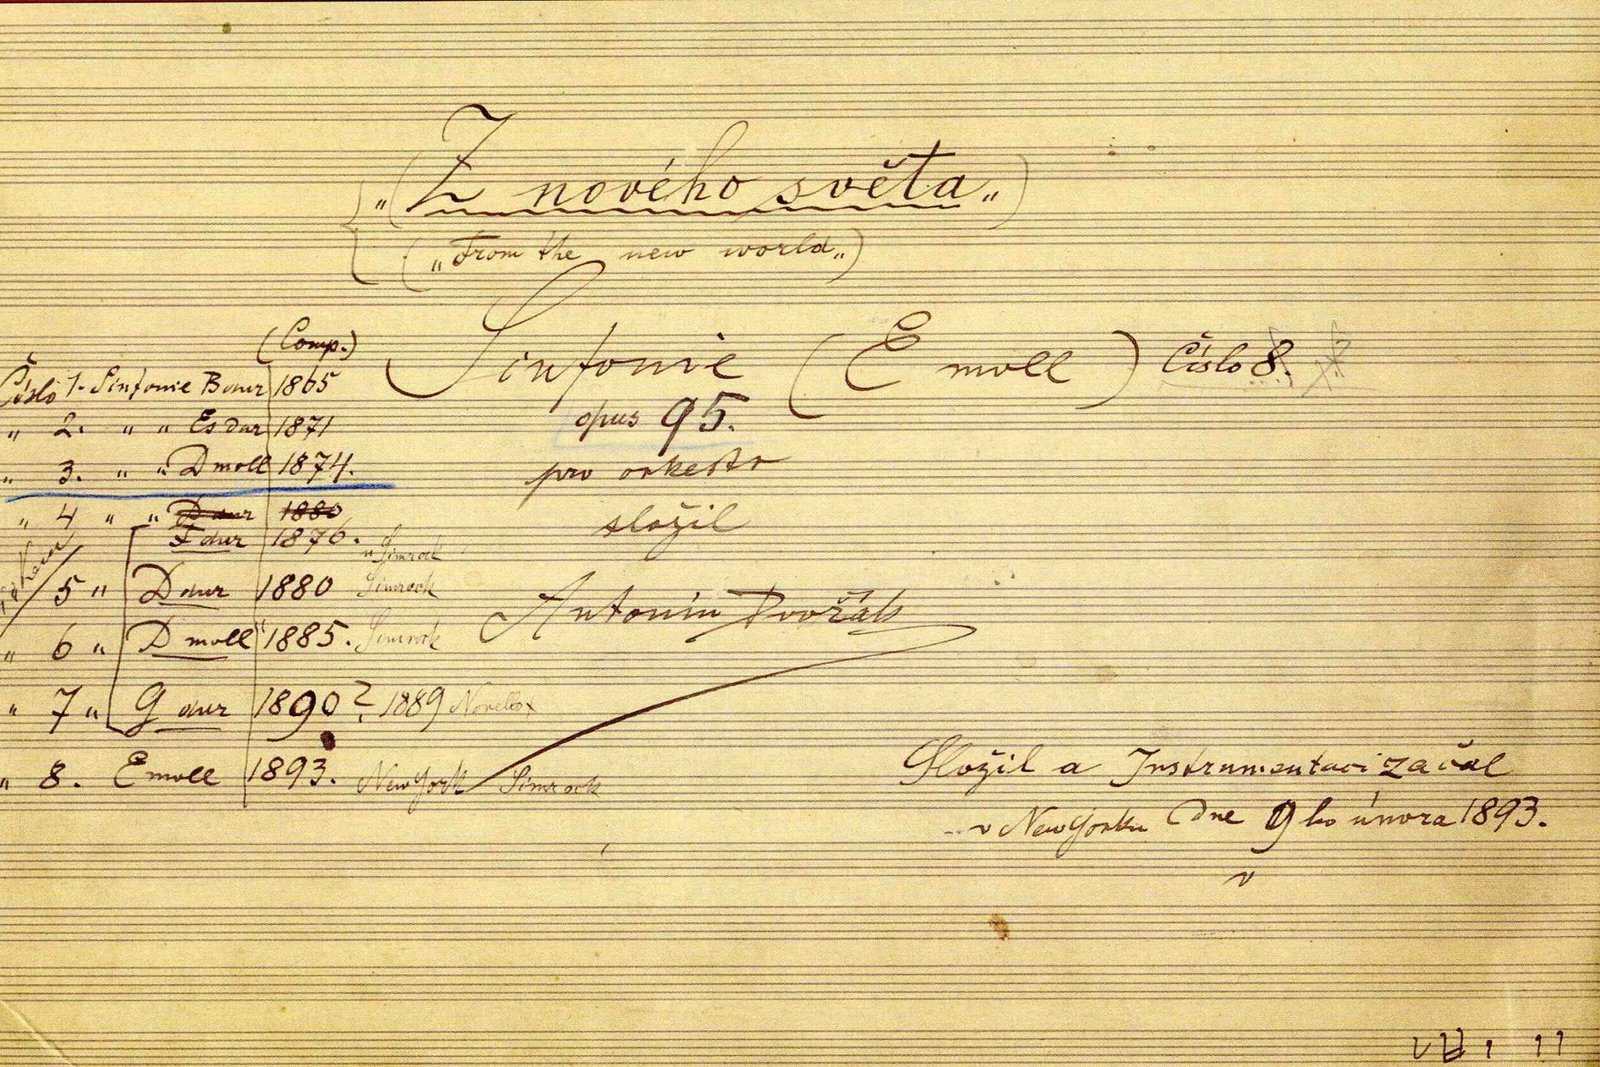 „Z nového světa„
(„From the new world„)
Sinfonie (E moll) Číslo 8.
opus 95.
pro orkestr
složil
Antonín Dvořák
(Comp.)
Číslo 1. Sinfonie B dur 1865
„ 2. „ „ Es dur 1871
„ 3. „ „ D moll 1874.
„ 4 „ „ D dur 1880
F dur 1876. u Simrock
5 „ D dur 1880 Simrock
„ 6 „ D moll 1885. Simrock
„ 7 „ G dur 1890? 1889 Novello
„ 8. E moll 1893. New York Simrock
Složil a Instrumentaci začal
v New Yorku Dne 9ho února 1893.
v